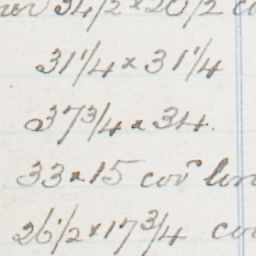 34 1/2 x 20 1/2
31 1/4 x 31 1/4
37 3/4 x 34.
33 x 15 cov͠ lin
26 1/2 x 17 3/4 co